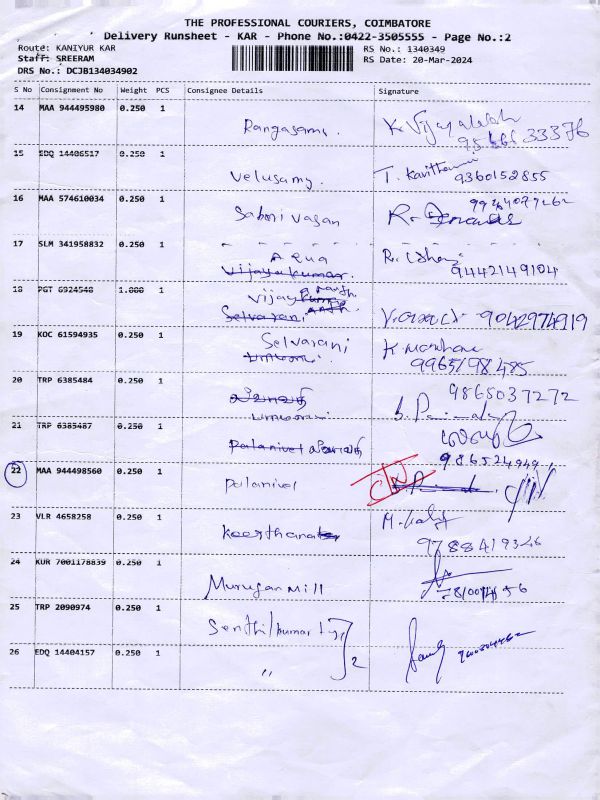 THE PROFESSIONAL COURIERS, COIMBATORE
Delivery Runsheet - KAR - Phone No.:0422-3505555 - Page No.:2
Route: KANIYUR KAR
Staff: SREERAM
DRS No.: DCJB134034902
RS No.: 1340349
RS Date: 20-Mar-2024
S No Consignment No Weight PCS Consignee Details Signature
14 MAA 944495980 0.250 1
Rangasami.
15 EDQ 14406517 0.250 1
Velusamy. 9360152855
16 MAA 574610034 0.250 1
Sabari vasan
17 SLM 341958832 0.250 1
Aqua
Vijaya kumar. 9442149104
18 PGT 6924548 1.000 1
Vijay
Selvarani 9042974919
19 KOC 61594935 0.250 1
Selvarani
9965198485
20 TRP 6385484 0.250 1
9865037272
21 TRP 6385487 0.250 1
Palanivel
22 MAA 944498560 0.250 1
Palanivel
23 VLR 4658258 0.250 1
Keerthana
9788419346
24 KUR 7001178839 0.250 1
Murugan Mill
25 TRP 2090974 0.250 1
Senthil kumar
26 EDQ 14404157 0.250 1
" 2